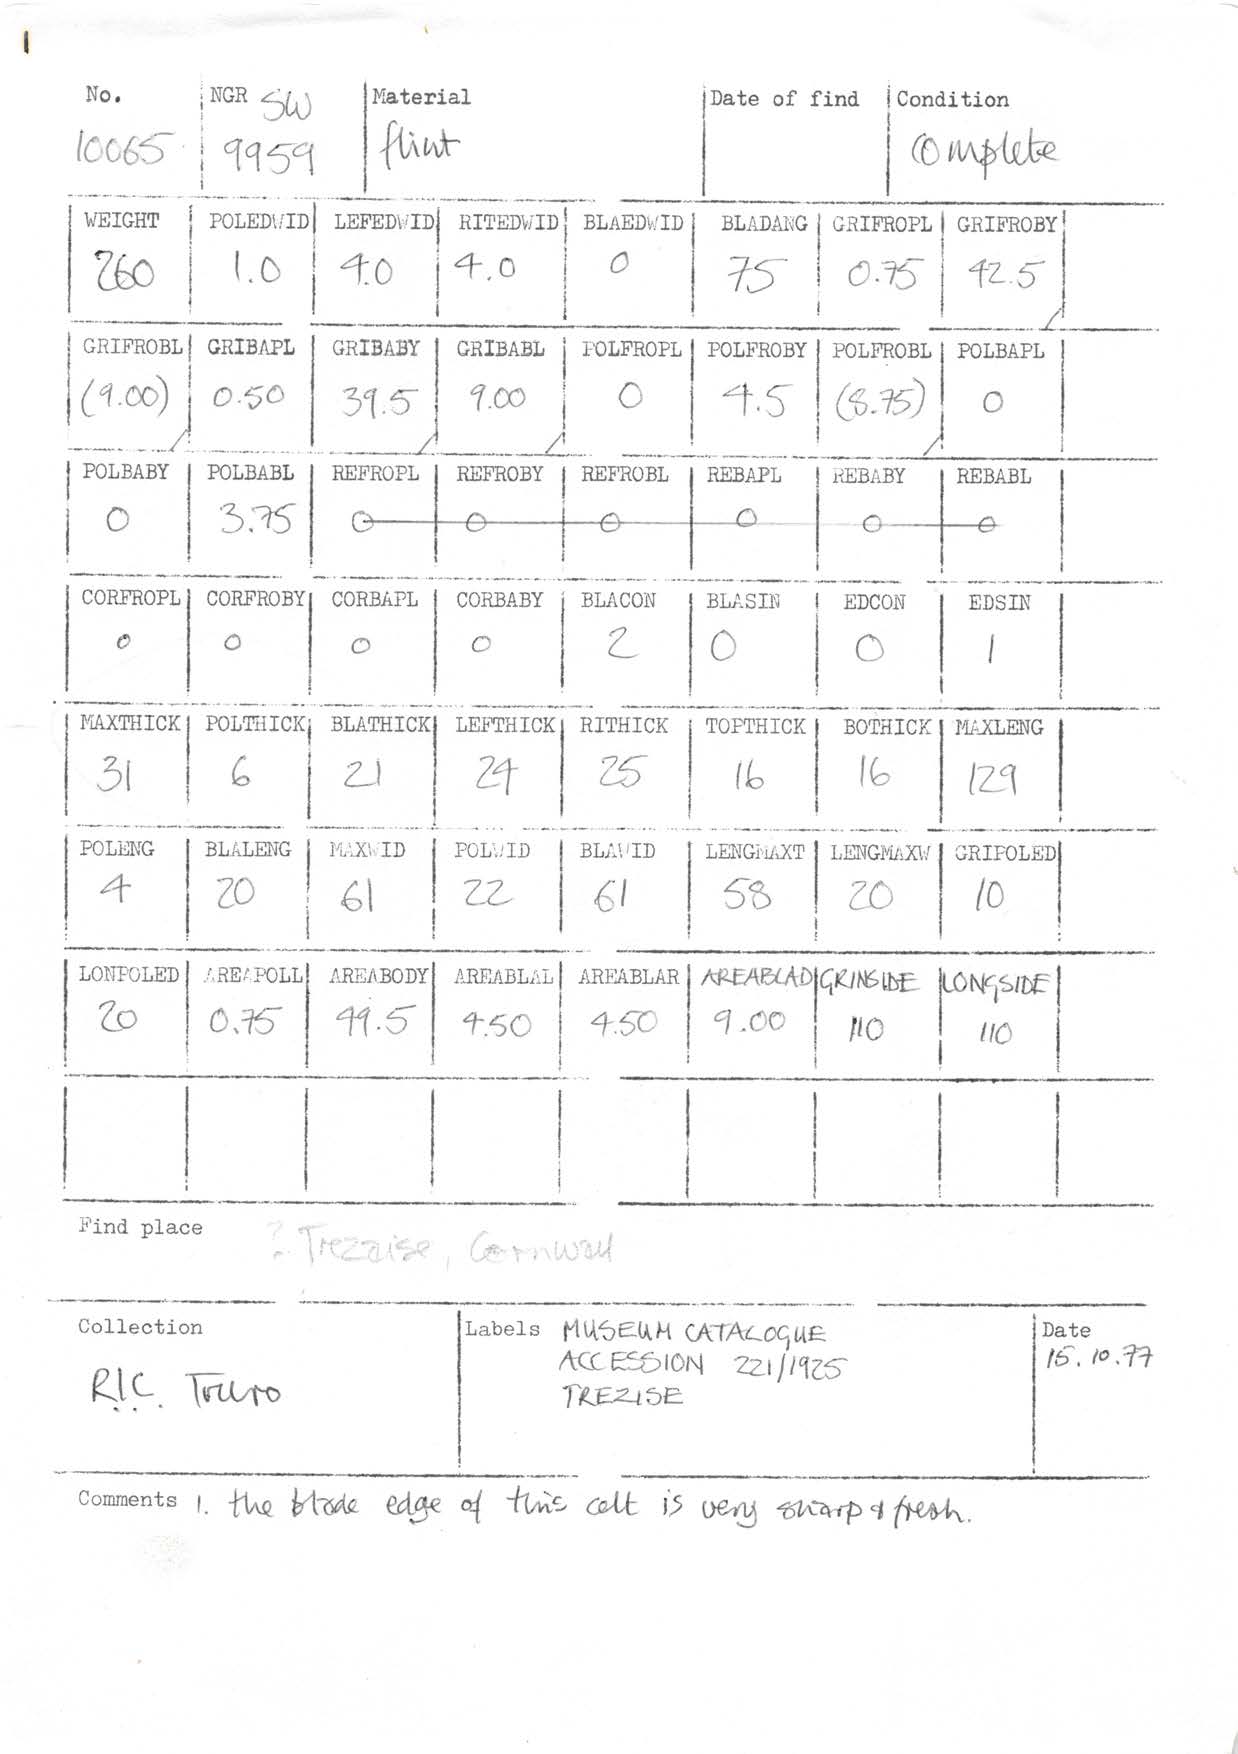 No. NGR SW Material Date of find Condition
10065 9959 flint complete
WEIGHT POLEDWID LEFEDWID RITEDWID BLAEDWID BLADANG GRIFROPL GRIFROBY
260 1.0 4.0 4.0 0 75 0.75 42.5
GRIFROBL GRIBAPL GRIBABY GRIBABL POLFROPL POLFROBY POLFROBL POLBAPL
(9.00) 0.50 39.5 9.00 0 4.5 (8.75) 0
POLBABY POLBABL REFROPL REFROBY REFROBL REBAPL REBABY REBABL
0 3.75 0 0 0 0 0 0
CORFROPL CORFROBY CORBAPL CORBABY BLACON BLASIN EDCON EDSIN
0 0 0 0 2 0 0 1
MAXTHICK POLTHICK BLATHICK LEFTHICK RITHICK TOPTHICK BOTHICK MAXLENG
31 6 21 24 25 16 16 129
POLENG BLALENG MAXWID POLWID BLAWID LENGMAXT LENGMAXW GRIPOLED
4 20 61 22 61 58 20 10
LONPOLED AREAPOLL AREABODY AREABLAL AREABLAR AREABLAD GRINSIDE LONGSIDE
20 0.75 49.5 4.50 4.50 9.00 110 110
Find place ? Trezaise, Cornwall
Collection Labels MUSEUM CATALOGUE Date
ACCESSION 221/1925 15.10.77
RIC Truro TREZISE
Comments 1. the blade edge of this celt is very sharp & fresh.